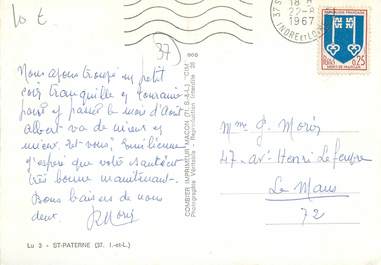 10 t
37)
18 H
22-8
1967
INDRE-et-LOIRE
REPUBLIQUE FRANCAISE
0,25
MONT-DE-MARSAN
Nous avons trouvé un petit
coin tranquille en Touraine
pour y passer le mois d'Août
Albert va de mieux en
mieux. Et vous, Emilienne
j'espère que votre santé est
très bonne maintenant.
Bons baisers de nous
deux.
Mme G. Morin
47- av. Henri Lefeuvre
Le Mans
72
COMBIER IMPRIMEUR MACON (71. S.-&-L.) "CIM"
Photographie Véritable - Reproduction interdite
Lu 3 - ST-PATERNE (37. I.-et-L.)